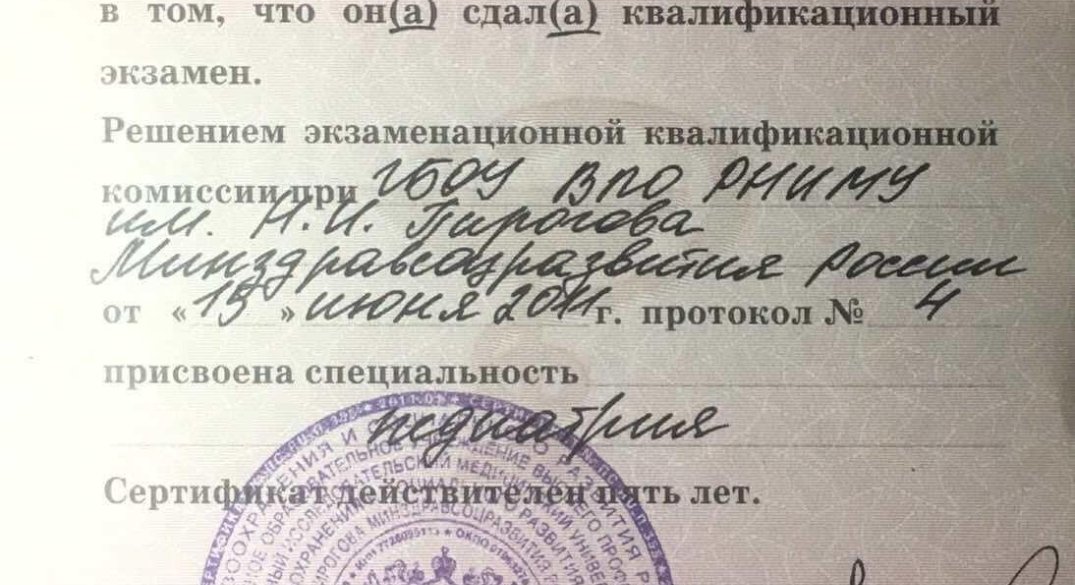 в том, что он(а) сдал(а) квалификационный
экзамен.
Решением экзаменационной квалификационной
комиссии при ГБОУ ВПО РНИМУ
им. Н.И. Пирогова
Минздравсоцразвития России
от «15» июня 2011 г. протокол № 4
присвоена специальность
педиатрия
Сертификат действителен пять лет.